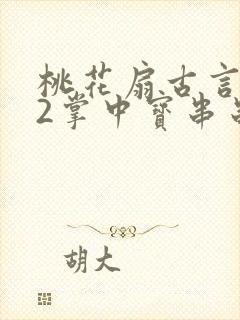 桃花扇古言
2掌中寶串
胡大